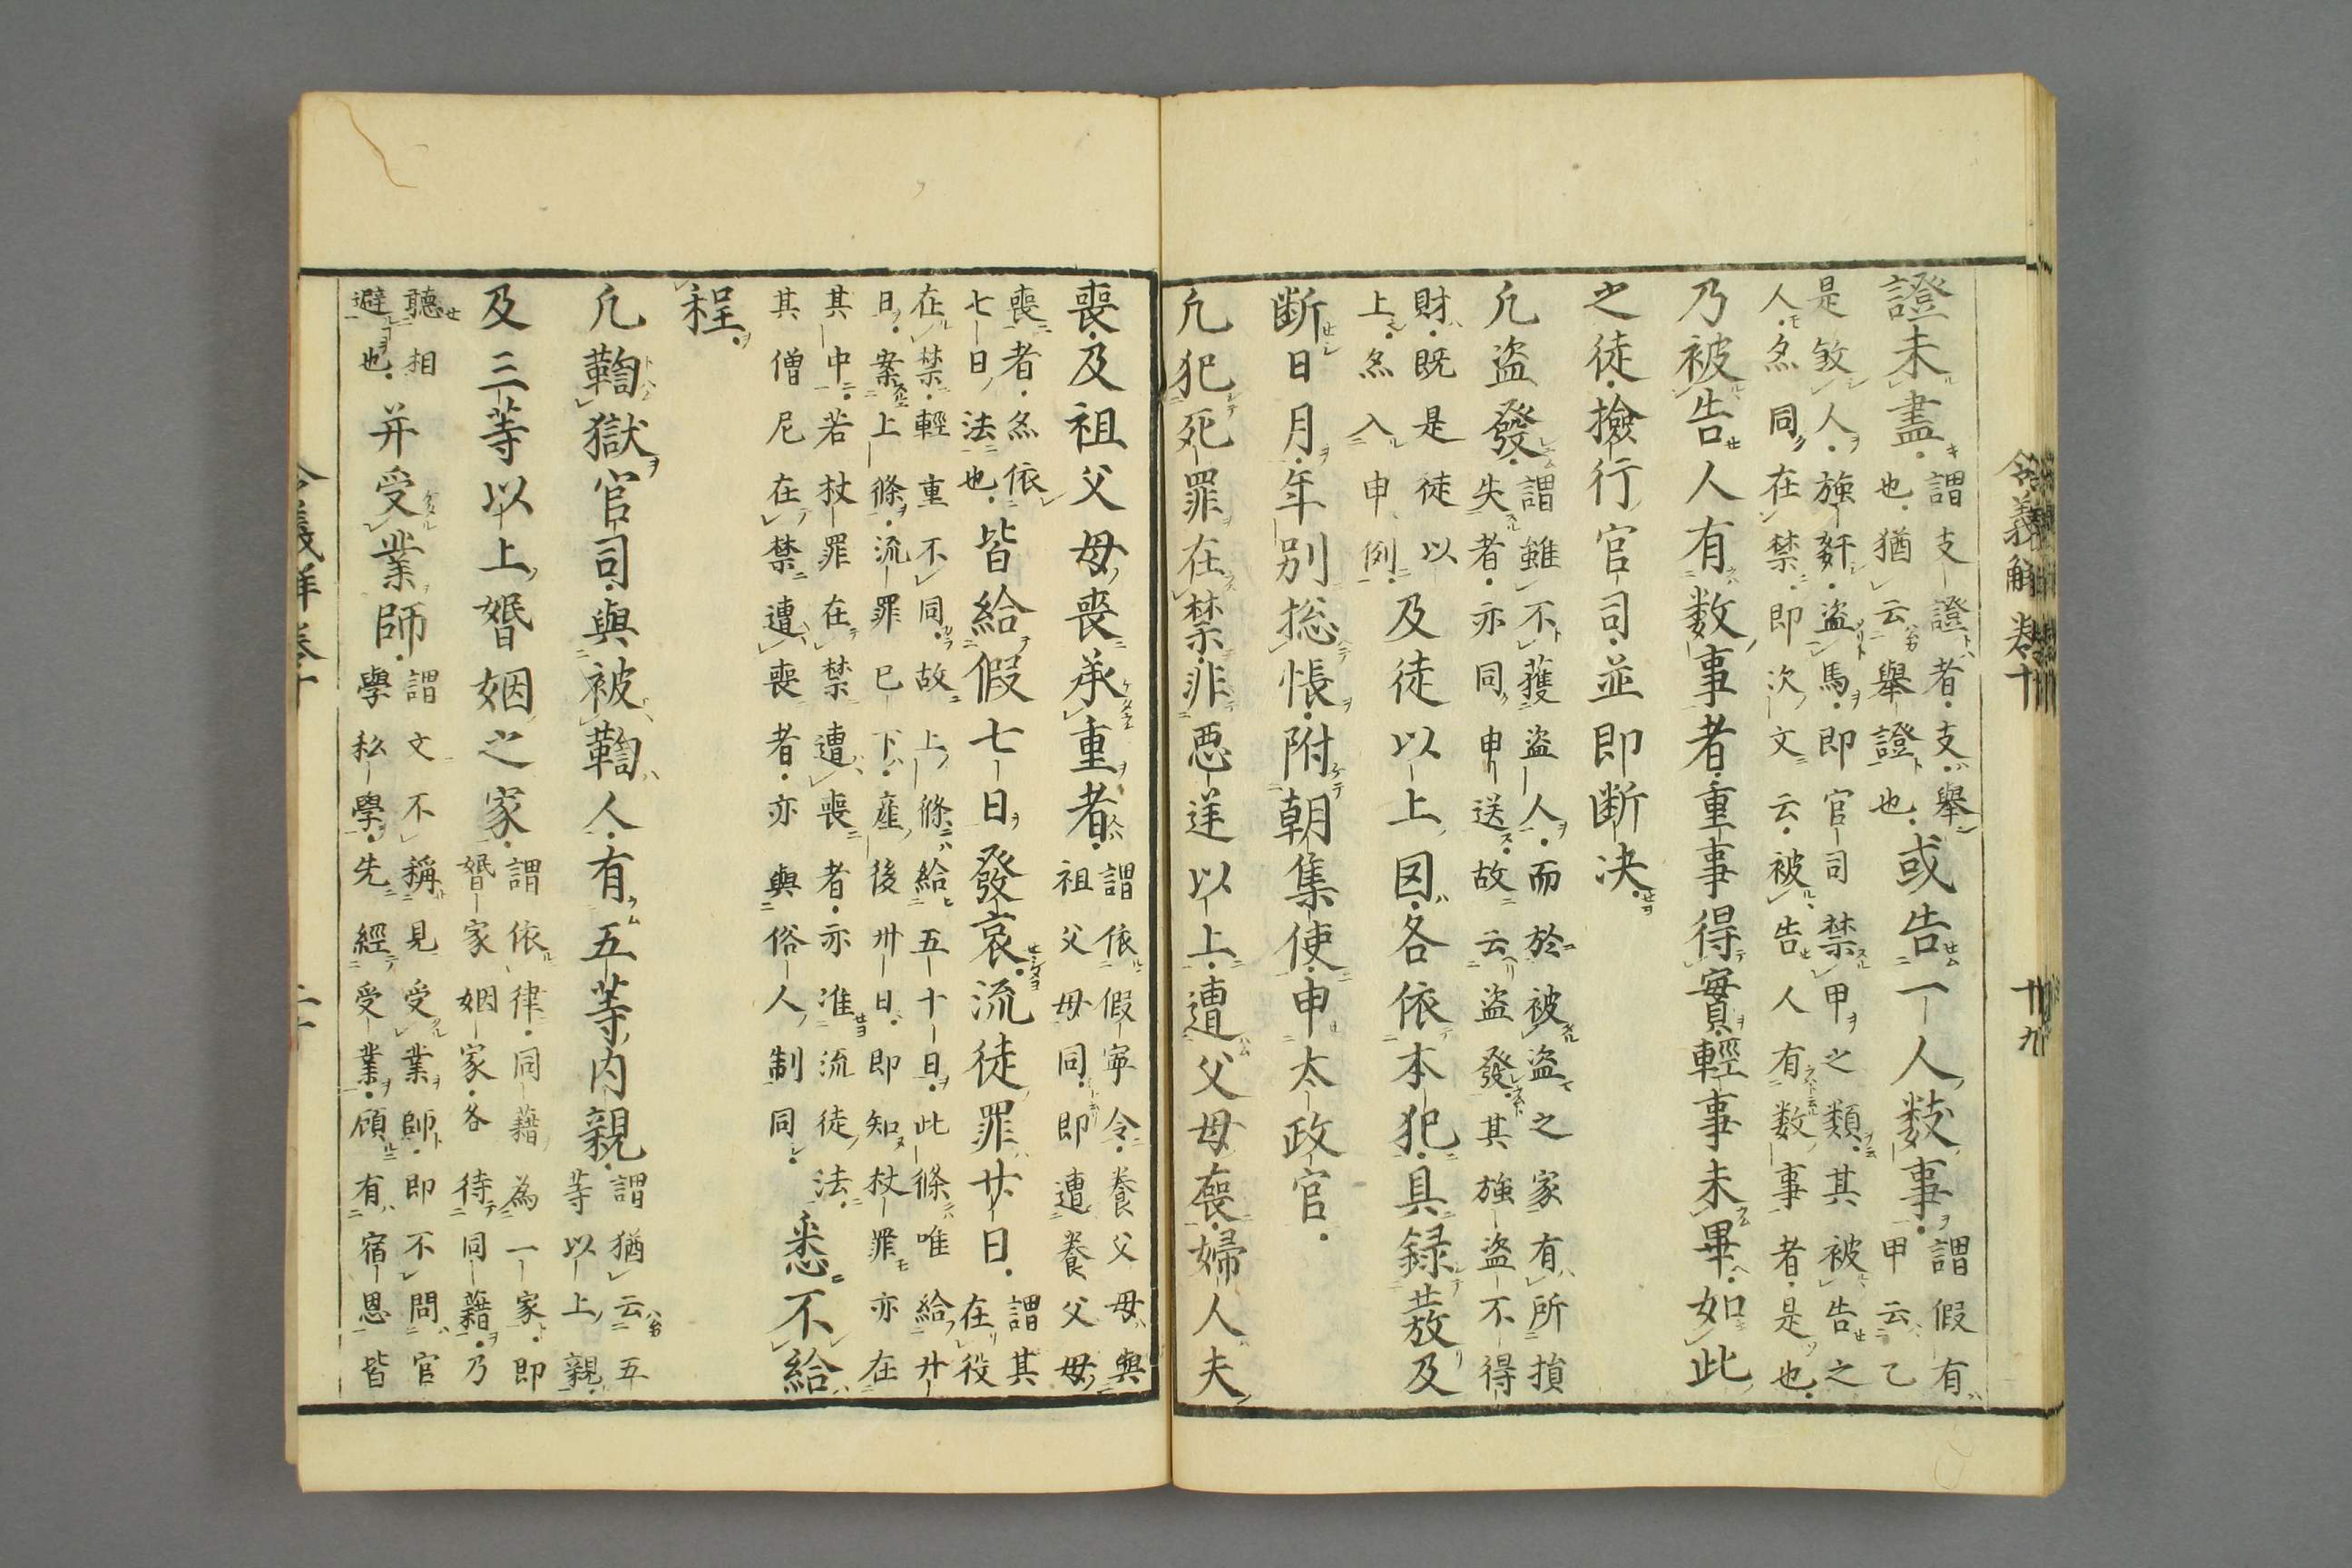 令義解卷十
十九
證未盡
謂支證者支舉
也猶云舉證也
或告一人数事
謂假有
甲云乙
是敘人強姧盜馬即官司禁甲之類其被告之
人然同在禁即次文云被告人有数事者是也
乃被告人有数事者重事得實輕事未畢如此
之徒撿行官司並即断决
凢盗發
謂雖不獲盗人而於被盗之家有所損
失者亦同申送故云盗發其強盗不得
財既是徒以
上然入申例
及徒以上囚各依本犯具録發及
断日月年別総帳附朝集使申太政官
凢犯死罪在禁非悪逆以上遭父母喪婦人夫
喪及祖父母喪承重者
謂依假寧令養父母與
祖父母同即遭養父母
喪者然依
七日法也
皆給假七日發哀流徒罪廿日
謂其
在役
在禁輕重不同故上條給五十日此條唯給廿
日案上條流罪已下産後卅日即知杖罪亦在
其中若杖罪在禁遭喪者亦准流徒法
其僧尼在禁遭喪者亦與俗人制同
悉不給
程
凢鞫獄官司與被鞫人有五等内親
謂猶云五
等以上親
及三等以上婚姻之家
謂依律同籍為一家即
婚家姻家各待同籍乃
聽相
避也
并受業師
謂文不稱見受業師即不問官
學私學先經受業顧有宿恩皆